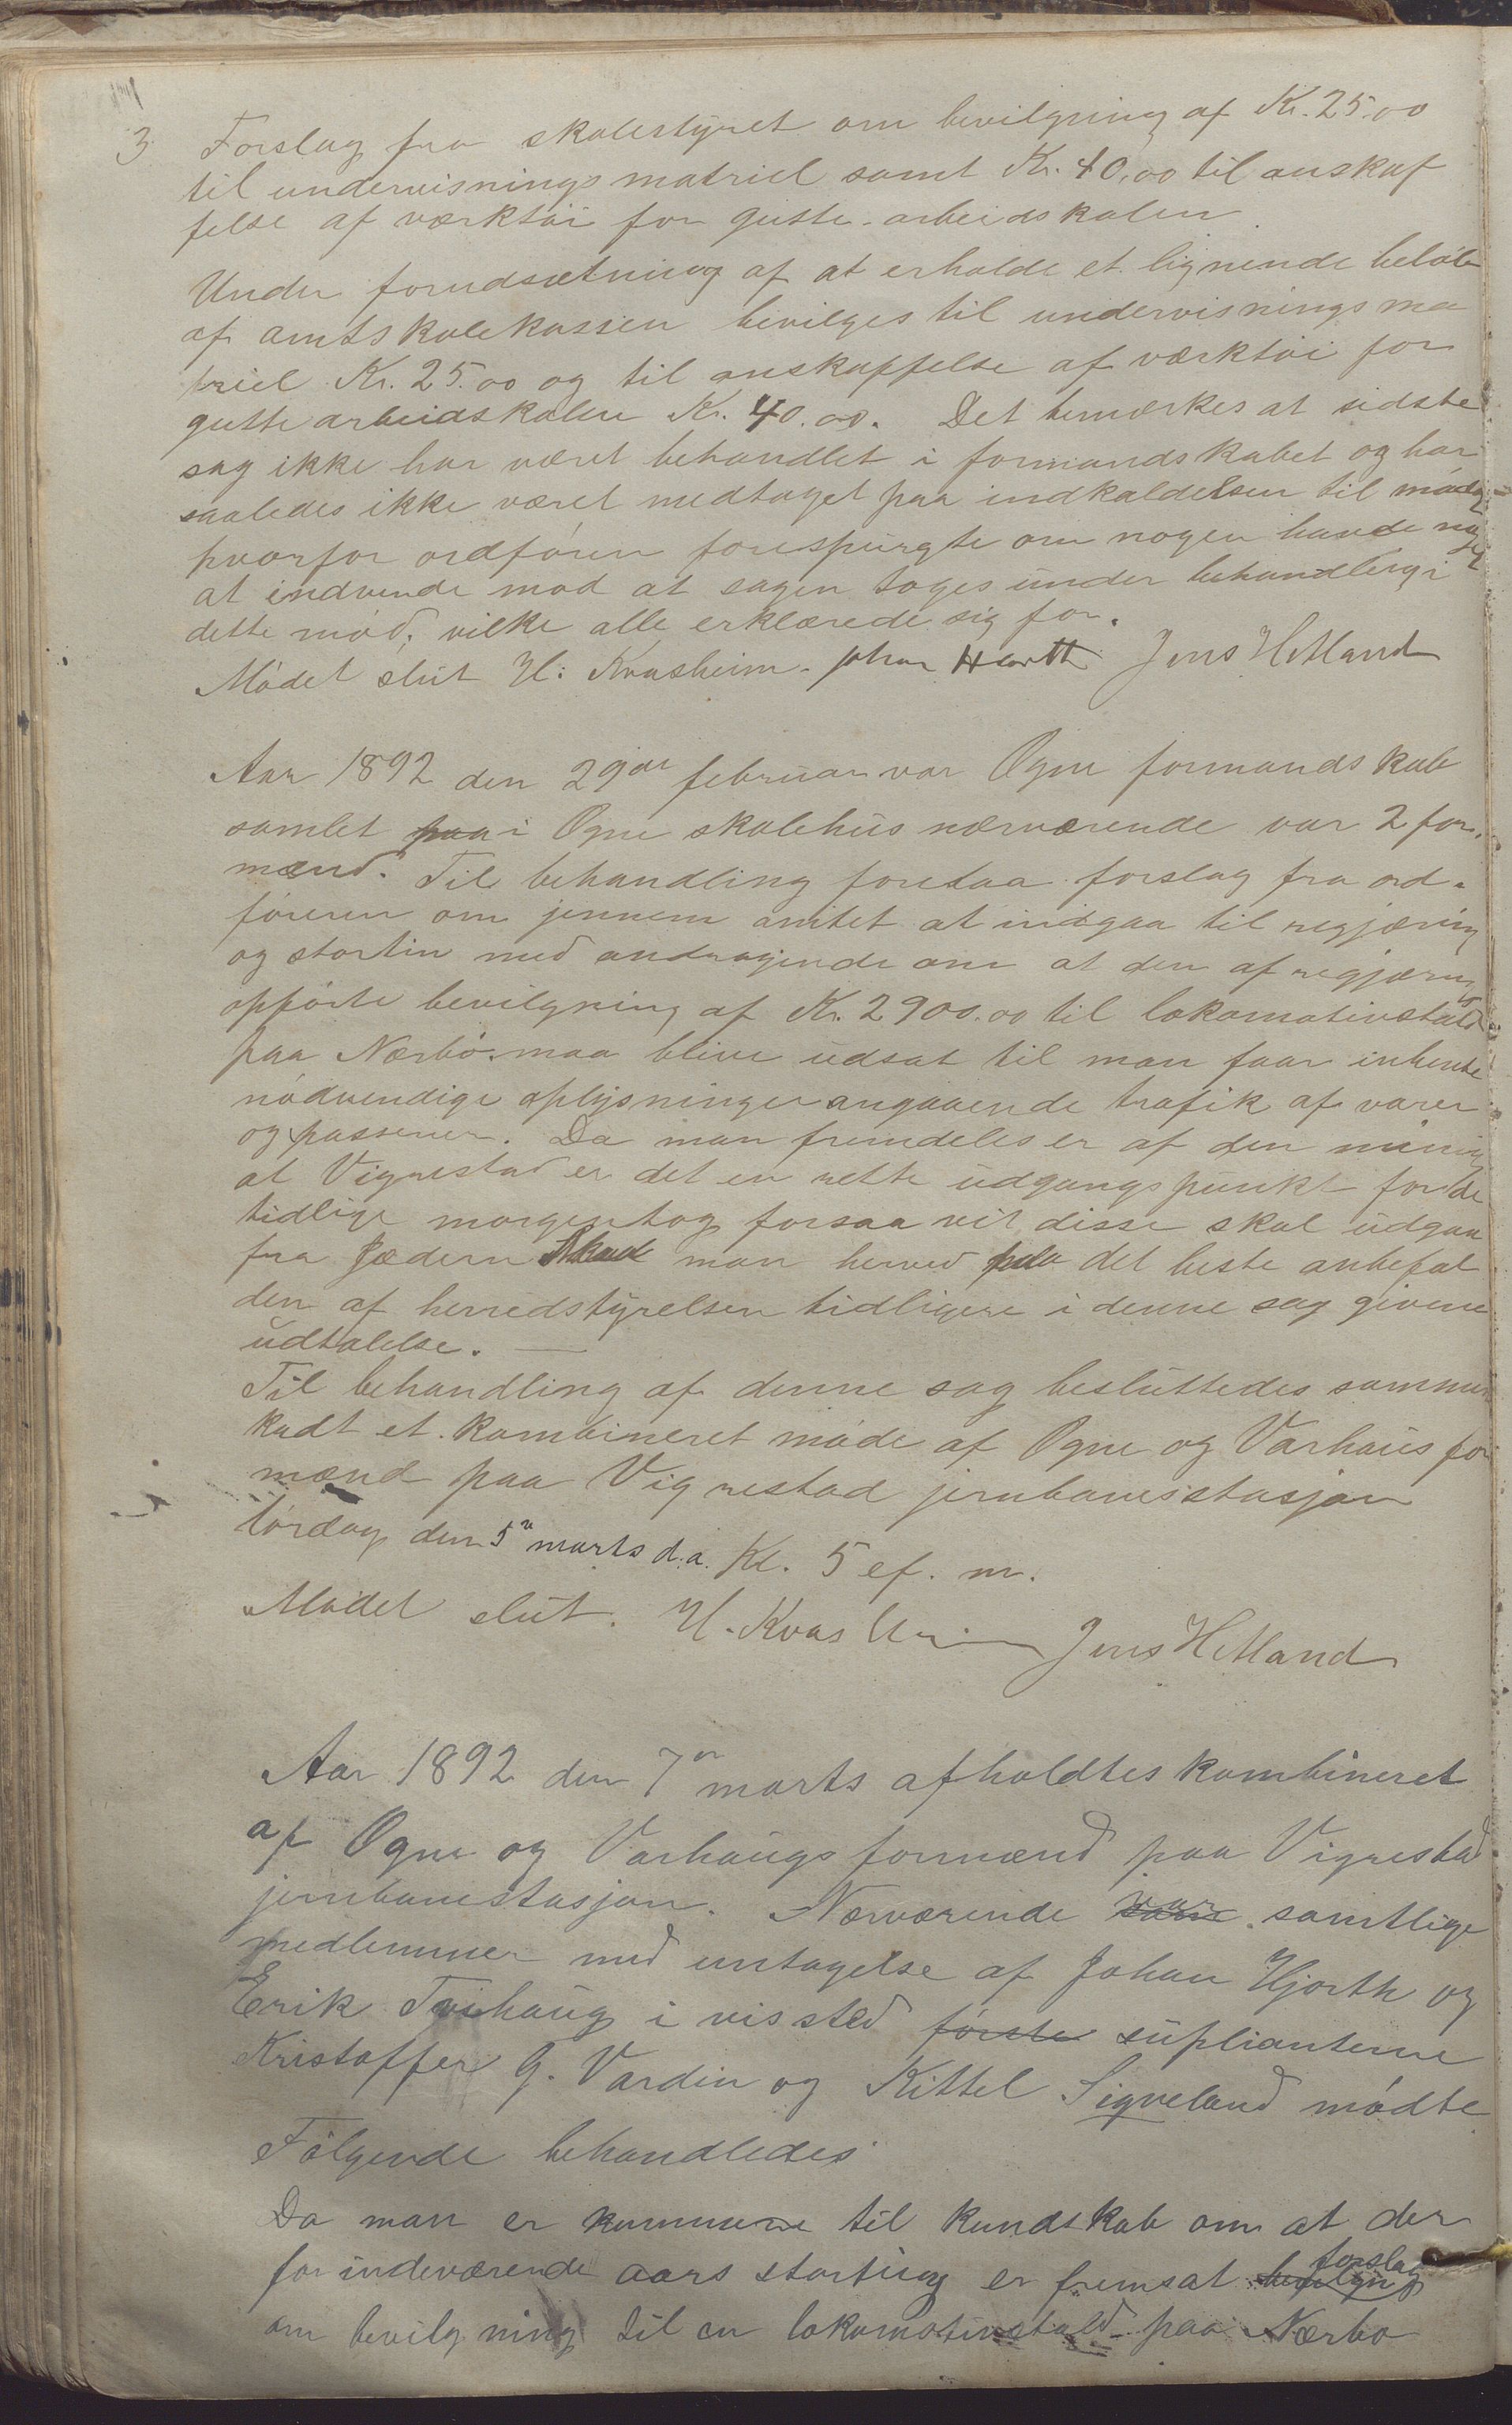 3 Forslag fra skolestyret om bevilgning af Kr. 25.00
til undervisningsmatriel samt Kr. 40,00 til anskaf
felse af værktøi for gutte-arbeidskolen
Under forudsætning af at erholde et lignende beløb
af amtskolekassen bevilges til undervisningsma
triel Kr. 25.00 og til anskaffelse af værktøi for
guttearbeidskolen Kr. 40.00. Det bemærkes at sidste
sag ikke har været behandlet i formandskabet og har
saaledes ikke været medtaget paa indkaldelsen til møde
hvorfor ordføren forespurgte om nogen havde noget
at indvende mod at sagen toges under behandling i
dette mød, vilke alle erklærede sig for.
Mødet slut H: Kvasheim. Johan Hjorth Jens Hetland
Aar 1892 den 29de februar var Ogne formandskab
samlet paa i Ogne skolehus nærværende var 2 for.
mænd. Til behandling foretaa forslag fra ord-
føreren om jennem amtet at indgaa til regjæring
og stortin med andragende om at den af regjæring
opførte bevilgning af Kr. 2900.00 til lokomotivstald
paa Nærbø maa blive udsat til man faar inhente
nødvendige oplysninger angaaende trafik af varer
og passerer. Da man fremdeles er af den mining
at Vigrestad er det en rette udgangspunkt for de
tidlige morgentog forsaa vit disse skal udgaa
fra Jædern Skal man herved paa det beste anbefal
den af herredstyrelsen tidligere i denne sag givene
udtalelse. —
Til behandling af denne sag besluttedes sammen
kadt et kombineret møde af Ogne og Varhaus for
mænd paa Vigrestad jernbanestasjon
lørdag den 5te marts d.a. Kl. 5 ef. m.
Mødet slut. H. Kvasheim Jens Hetland
Aar 1892 den 7de marts afholdtes kombineret
af Ogne og Varhaugs formænd paa Vigrestad
jernbanestasjon. Nærværende var samtlige
medlemmer med untagelse af Johan Hjorth og
Erik Tvihaug i vis sted første suplianterne
Kristoffer G. Vardin og Kittel Sigveland mødte
Følgende behandledes
Da man er kommene til kundskab om at der
for indeværende aars storting er fremsat forslag
om bevilgning til en lokomotivstald paa Nærbø